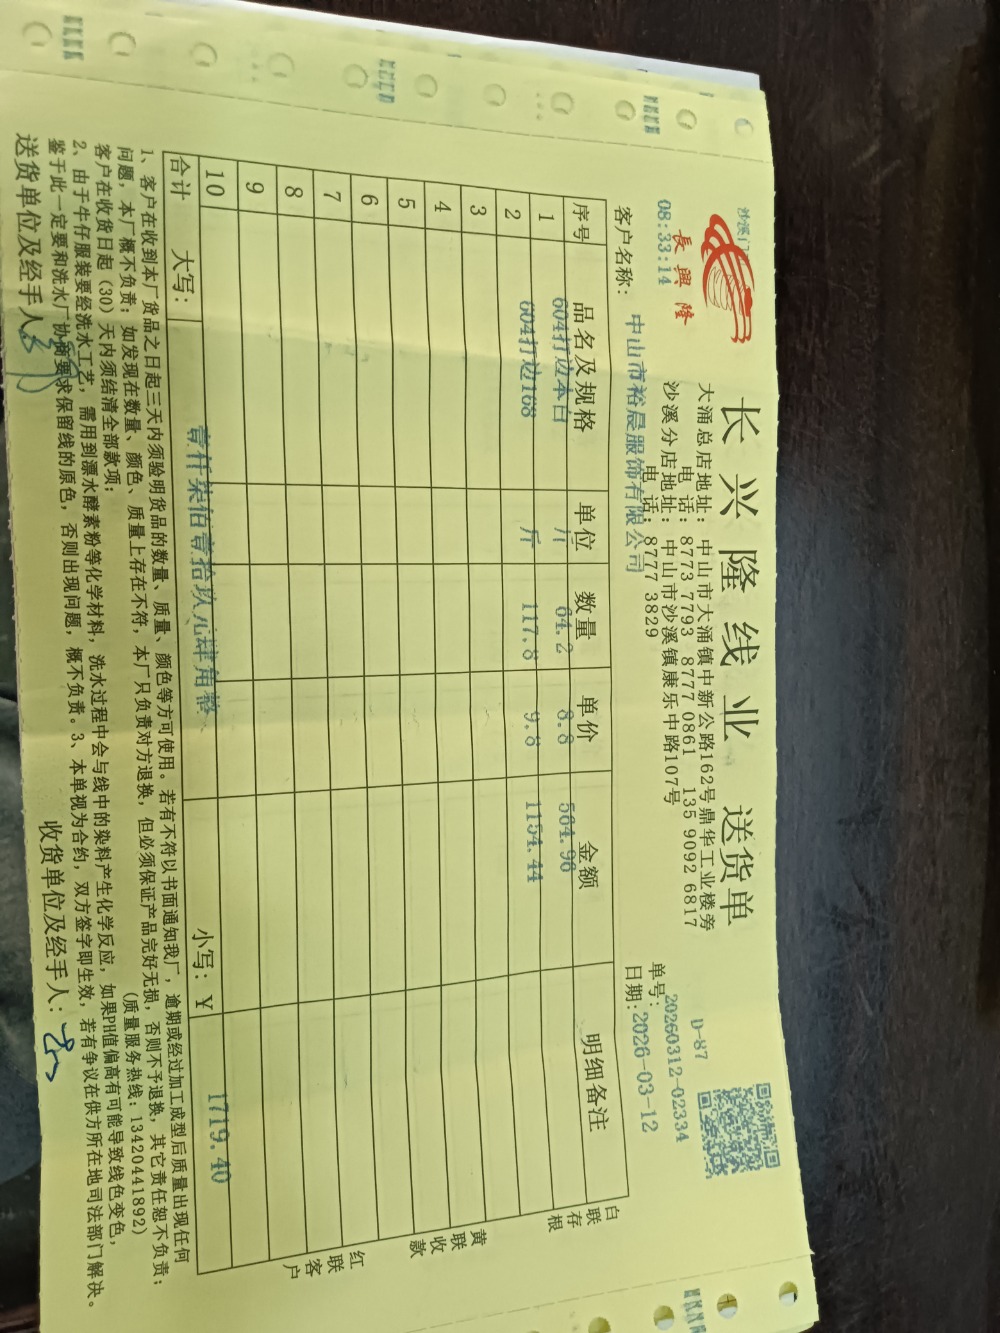 長興隆
长兴隆线业 送货单
D-87
大涌总店地址: 中山市大涌镇中新公路162号鼎华工业楼旁
电话: 8773 7793 8777 0861 135 9092 6817
沙溪分店地址: 中山市沙溪镇康乐中路107号
电话: 8777 3829
沙溪门
08:33:14
单号: 20260312-02334
客户名称: 中山市裕晨服饰有限公司
日期: 2026-03-12
序号 品名及规格 单位 数量 单价 金额 明细备注
1 604打边本白 斤 64.2 8.8 564.96
2 604打边168 斤 117.8 9.8 1154.44
3
4
5
6
7
8
9
10
合计 大写: 壹仟柒佰壹拾玖元肆角整 小写: ¥ 1719.40
白联存根
黄联收款
红联客户
1、客户在收到本厂货品之日起三天内须验明货品的数量、质量、颜色等方可使用。若有不符以书面通知我厂，逾期或经过加工成型后质量出现任何
问题，本厂概不负责；如发现在数量、颜色、质量上存在不符，本厂只负责对方退换，但必须保证产品完好无损，否则不予退换，其它责任恕不负责；
客户在收货日起（30）天内须结清全部款项； (质量服务热线: 13420441892)
2、由于牛仔服装要经洗水工艺，需用到漂水酵素粉等化学材料，洗水过程中会与线中的染料产生化学反应，如果PH值偏高有可能导致线色变色，
鉴于此一定要和洗水厂协商要求保留线的原色，否则出现问题，概不负责。3、本单视为合约，双方签字即生效，若有争议在供方所在地司法部门解决。
送货单位及经手人: 收货单位及经手人: